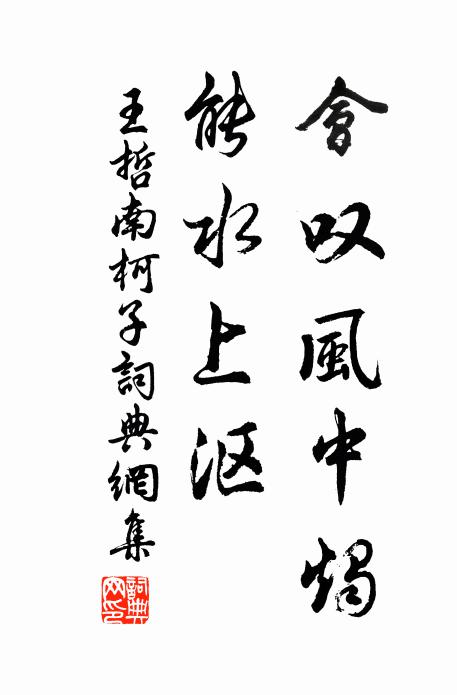 會叹風中燭
能水上沤
王哲南柯子詞典網集
詞典网印